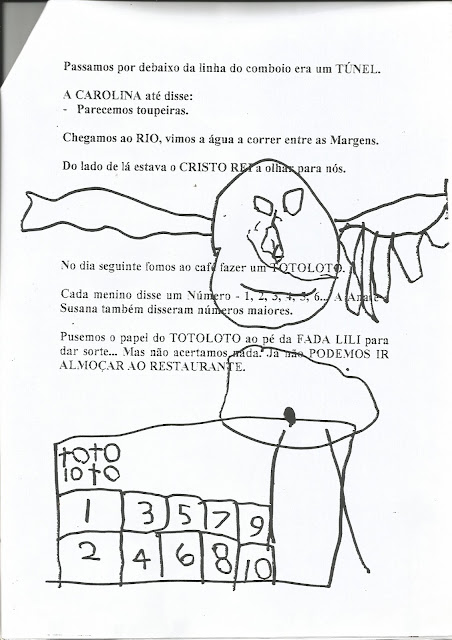 Passamos por debaixo da linha do comboio era um TÚNEL.
A CAROLINA até disse:
- Parecemos toupeiras.
Chegamos ao RIO, vimos a água a correr entre as Margens.
Do lado de lá estava o CRISTO REI a olhar para nós.
No dia seguinte fomos ao café fazer um TOTOLOTO.
Cada menino disse um Número - 1, 2, 3, 4, 5, 6... A
Susana também disseram números maiores.
Pusemos o papel do TOTOLOTO ao pé da FADA LILI para
dar sorte... Mas não acertamos nada. Já não PODEMOS IR
ALMOÇAR AO RESTAURANTE.
tOtO
lOtO
1 3 5 7 9
2 4 6 8 10